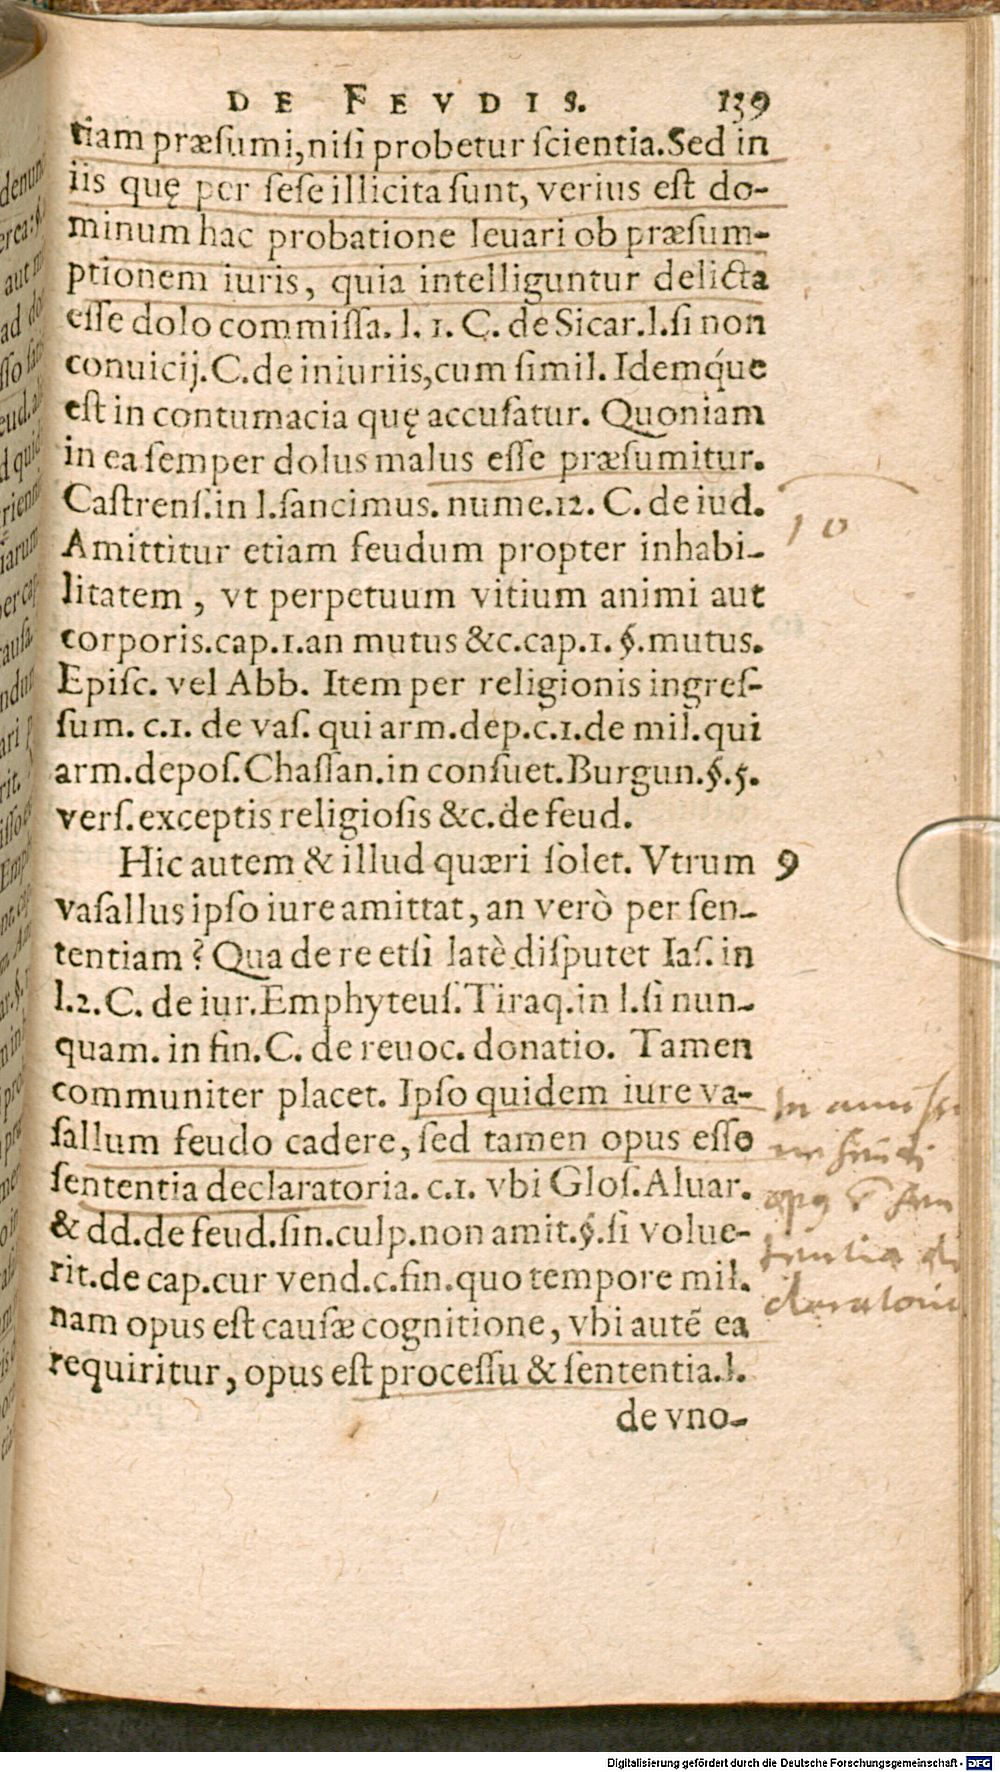 DE FEVDIS. 139
tiam præsumi, nisi probetur scientia. Sed in
iis quę per sese illicita sunt, verius est do-
minum hac probatione leuari ob præsum-
ptionem iuris, quia intelliguntur delicta
esse dolo commissa. l. 1. C. de Sicar. l. si non
conuicij. C. de iniuriis, cum simil. Idemq́ue
est in contumacia quę accusatur. Quoniam
in ea semper dolus malus esse præsumitur.
Castrens. in l. sancimus. nume. 12. C. de iud.
10
Amittitur etiam feudum propter inhabi-
litatem, vt perpetuum vitium animi aut
corporis. cap. 1. an mutus &c. cap. 1. §. mutus.
Episc. vel Abb. Item per religionis ingres-
sum. c. 1. de vas. qui arm. dep. c. 1. de mil. qui
arm. depos. Chassan. in consuet. Burgun. §. 5.
vers. exceptis religiosis &c. de feud.
Hic autem & illud quæri solet. Vtrum 9
vasallus ipso iure amittat, an verò per sen-
tentiam? Qua de re etsi latè disputet Ias. in
l. 2. C. de iur. Emphyteus. Tiraq. in l. si nun-
quam. in fin. C. de reuoc. donatio. Tamen
communiter placet. Ipso quidem iure va-
sallum feudo cadere, sed tamen opus esse
sententia declaratoria. c. 1. vbi Glos. Aluar.
& dd. de feud. sin. culp. non amit. §. si volue-
rit. de cap. cur vend. c. fin. quo tempore mil.
nam opus est causæ cognitione, vbi autē ea
requiritur, opus est processu & sententia. l.
de vno-
Digitalisierung gefördert durch die Deutsche Forschungsgemeinschaft - DFG